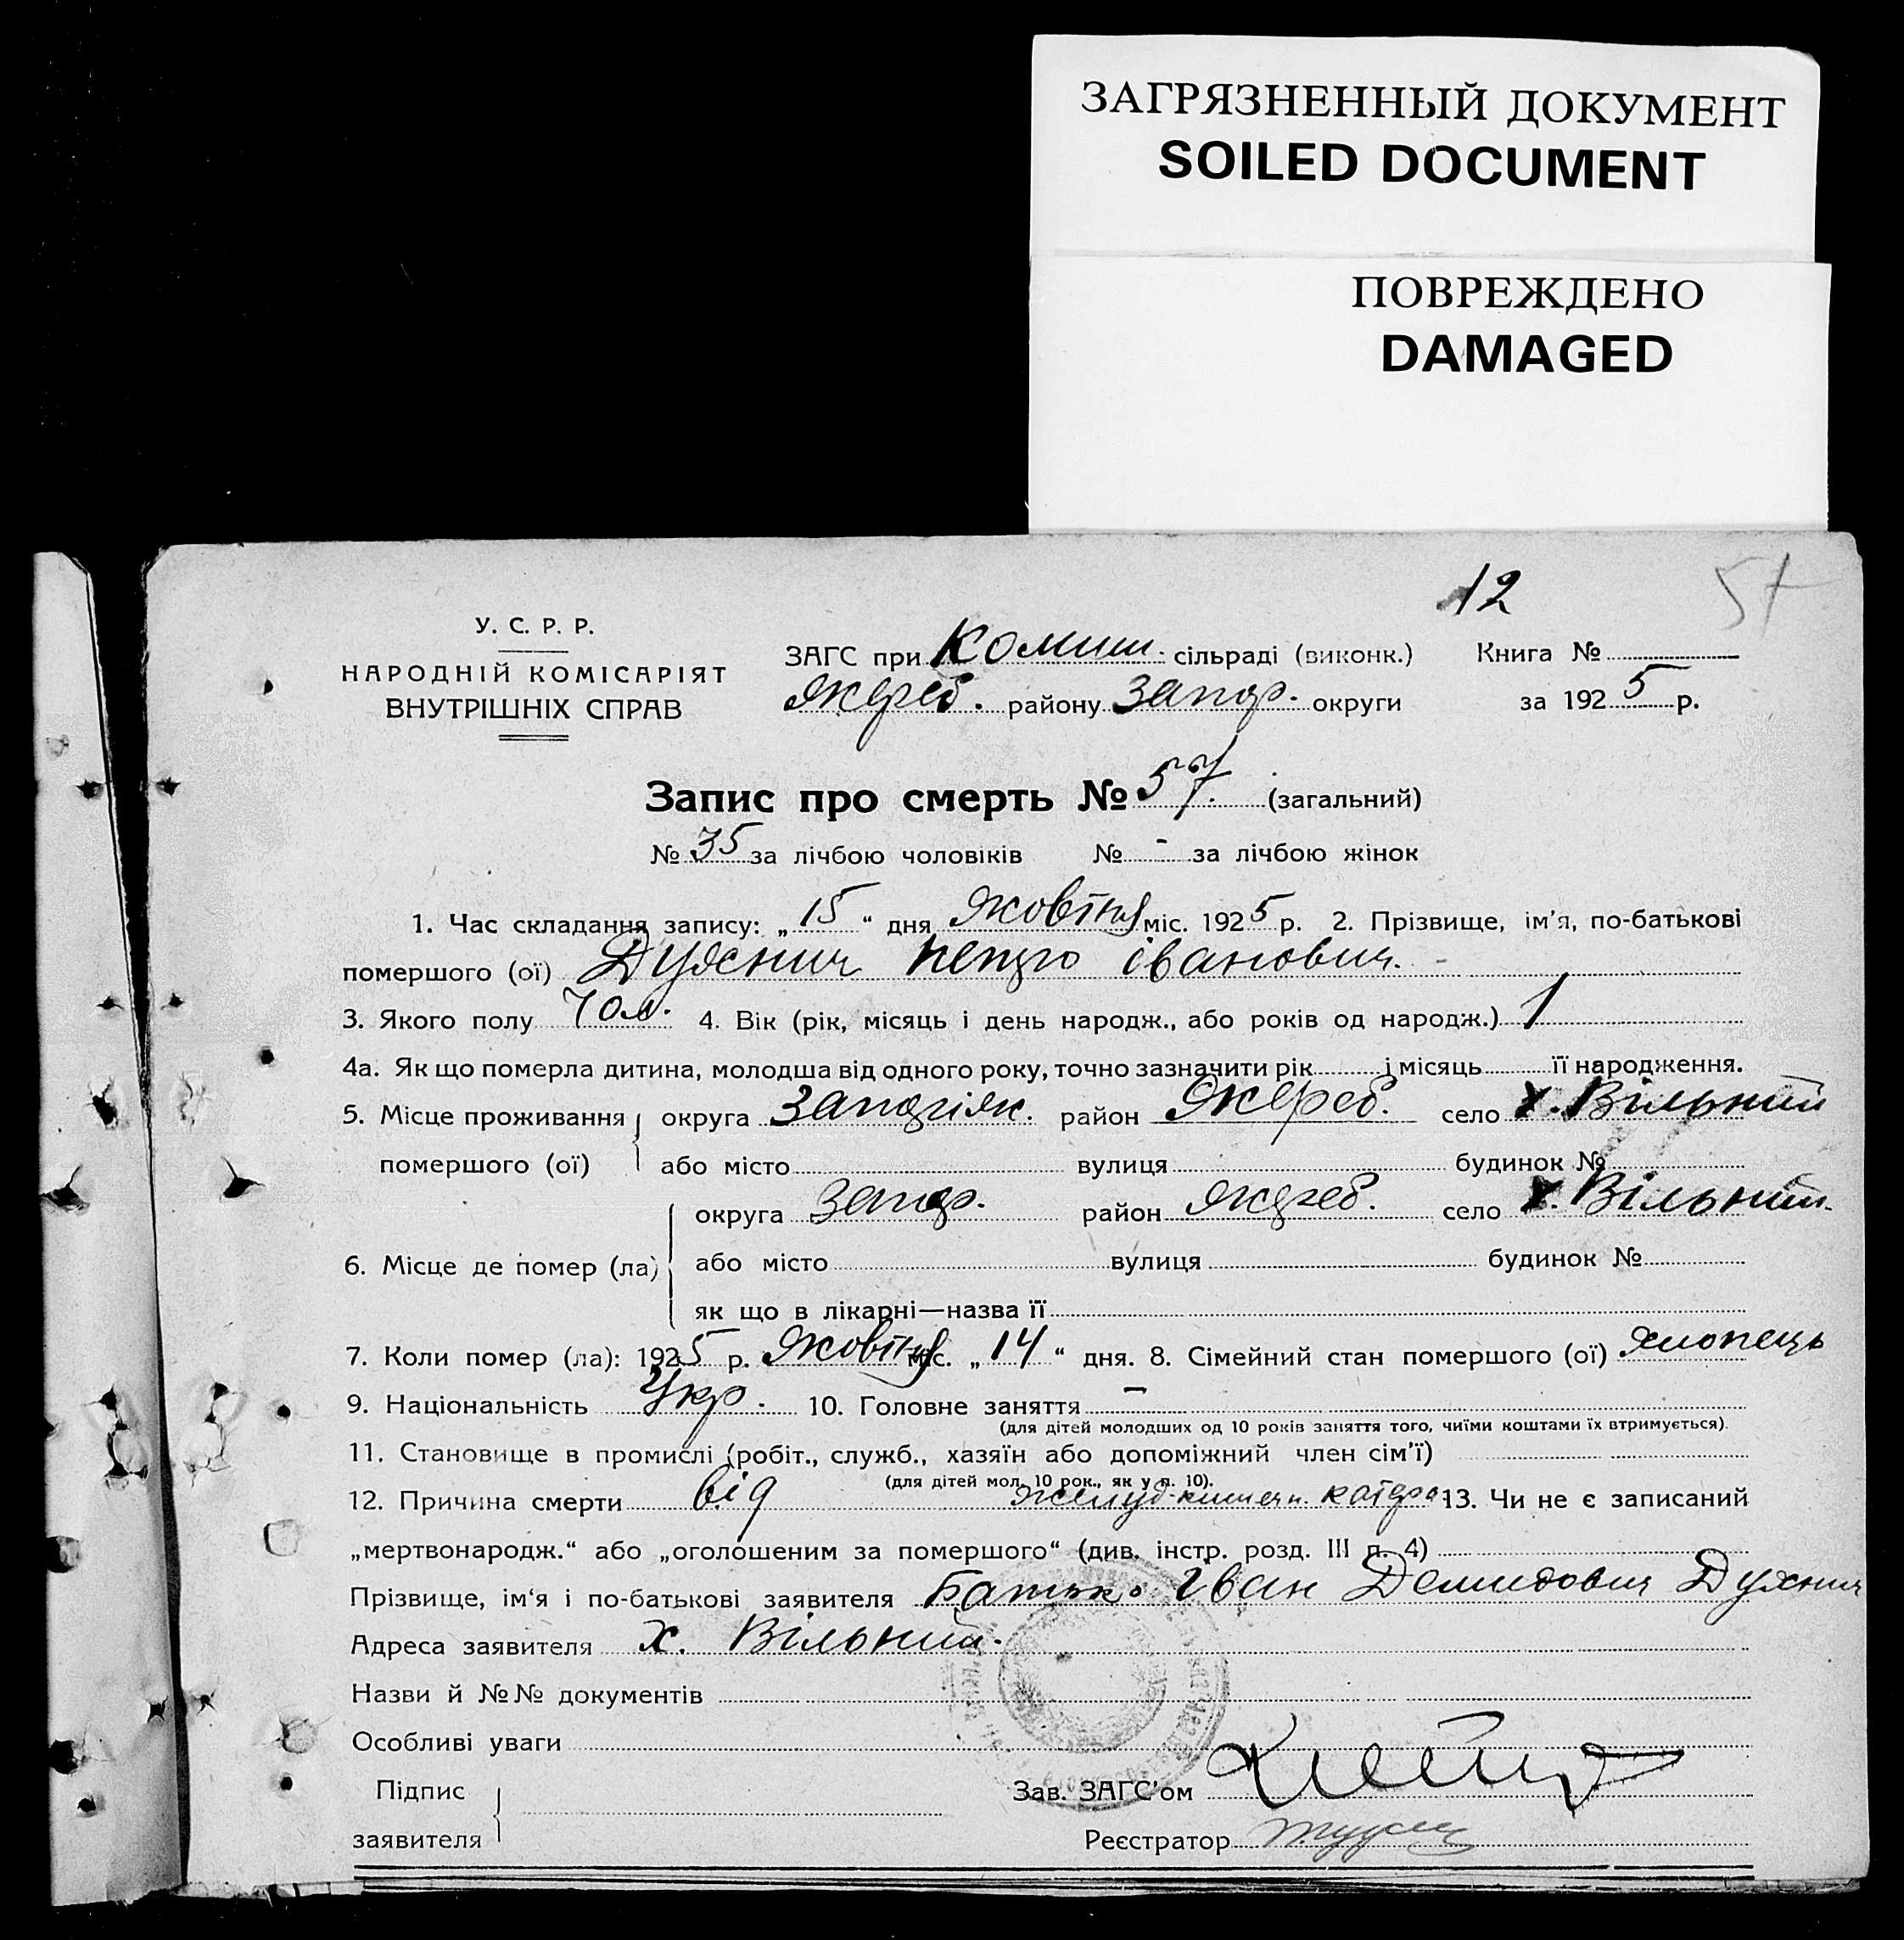 ЗАГРЯЗНЕННЫЙ ДОКУМЕНТ
SOILED DOCUMENT
ПОВРЕЖДЕНО
DAMAGED
12 57
У. С. Р. Р.
НАРОДНІЙ КОМІСАРІЯТ
ВНУТРІШНІХ СПРАВ
ЗАГС при Комиш. сільраді (виконк.) Книга №
Жереб. району Запор. округи за 1925 р.
Запис про смерть № 57. (загальний)
№ 35 за лічбою чоловіків № - за лічбою жінок
1. Час складання запису: „15“ дня Жовтня міс. 1925 р. 2. Прізвище, ім'я, по-батькові
помершого (ої) Духнич Петро Іванович.
3. Якого полу Чол. 4. Вік (рік, місяць і день народж., або років од народж.) 1
4а. Як що померла дитина, молодша від одного року, точно зазначити рік і місяць її народження.
5. Місце проживання округа Запоріж. район Жереб. село х. Вільний
помершого (ої) або місто вулиця будинок №
округа Запор. район Жереб. село х. Вільний.
6. Місце де помер (ла) або місто вулиця будинок №
як що в лікарні—назва її
7. Коли помер (ла): 1925 р. Жовтня міс. „14“ дня. 8. Сімейний стан помершого (ої) хлопець
9. Національність Укр. 10. Головне заняття —
(для дітей молодших од 10 років заняття того, чиїми коштами їх втримується).
11. Становище в промислі (робіт., служб., хазяїн або допоміжний член сім'ї)
(для дітей мол. 10 рок., як у п. 10).
12. Причина смерти від 13. Чи не є записаний
„мертвонародж.“ або „оголошеним за помершого“ (див. інстр. розд. III п. 4)
Прізвище, ім'я і по-батькові заявителя Батько Іван Демидович Духнич
Адреса заявителя х. Вільний.
Назви й №№ документів
Особливі уваги
Підпис
заявителя
Зав. ЗАГС'ом
Реєстратор